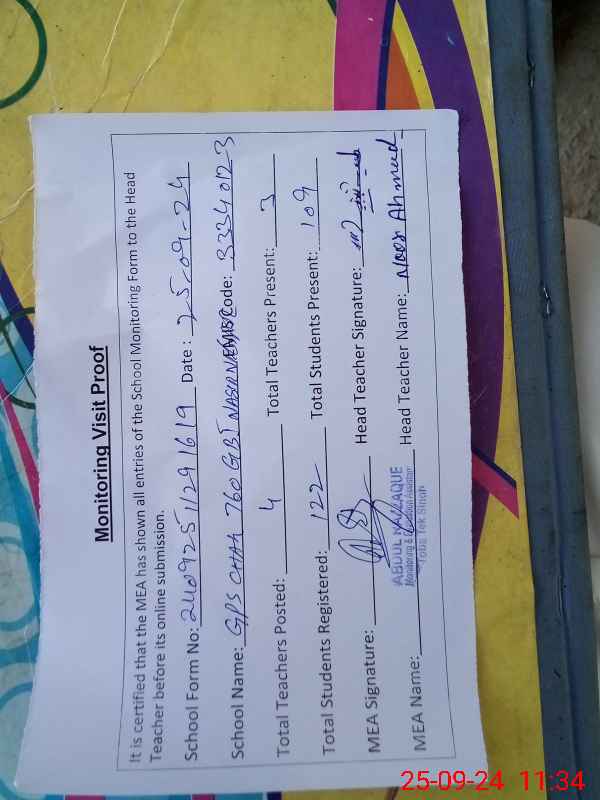 Monitoring Visit Proof
It is certified that the MEA has shown all entries of the School Monitoring Form to the Head
Teacher before its online submission.
School Form No: 2409251129 1619 Date : 25-09-24
School Name: GPS CHAK 760 GB Code: 33340123
Total Teachers Posted: 4 Total Teachers Present: 3
Total Students Registered: 122 Total Students Present: 109
MEA Signature: Head Teacher Signature:
MEA Name: ABDUL RAZZAQUE Head Teacher Name: Noor Ahmed
Monitoring & Evaluation Assistant
Toba Tek Singh
25-09-24 11:34